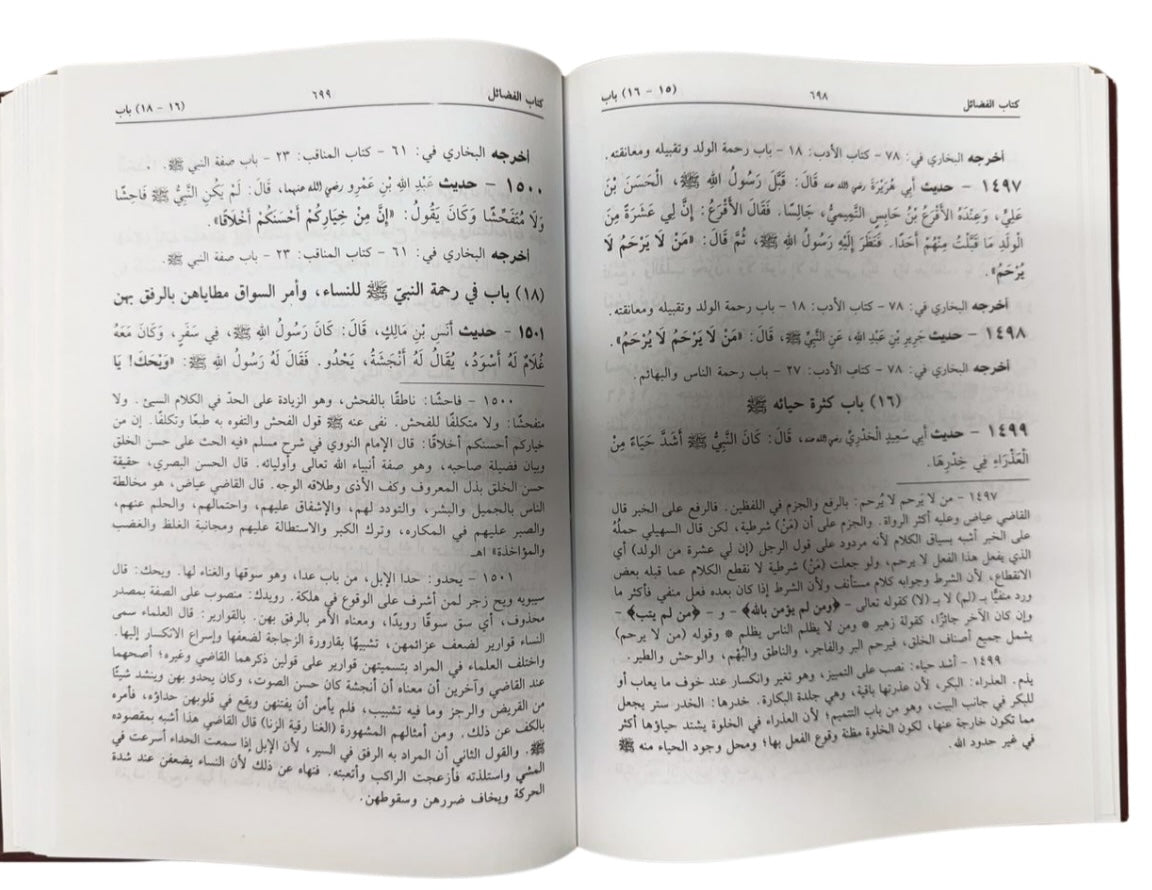 كتاب الفضائل ٦٩٨ (١٥ - ١٦) باب
أخرجه البخاري في: ٧٨ - كتاب الأدب: ١٨ - باب رحمة الولد وتقبيله ومعانقته.
١٤٩٧ - حديث أَبِي هُرَيْرَةَ رضي الله عنه قَالَ: قَبَّلَ رَسُولُ اللهِ ﷺ، الْحَسَنَ بْنَ
عَلِيٍّ، وَعِنْدَهُ الأَقْرَعُ بْنُ حَابِسٍ التَّمِيمِيُّ، جَالِسًا. فَقَالَ الأَقْرَعُ: إِنَّ لِي عَشَرَةً مِنَ
الْوَلَدِ مَا قَبَّلْتُ مِنْهُمْ أَحَدًا. فَنَظَرَ إِلَيْهِ رَسُولُ اللهِ ﷺ، ثُمَّ قَالَ: «مَنْ لَا يَرْحَمُ لَا
يُرْحَمُ».
أخرجه البخاري في: ٧٨ - كتاب الأدب: ١٨ - باب رحمة الولد وتقبيله ومعانقته.
١٤٩٨ - حديث جَرِيرِ بْنِ عَبْدِ اللهِ، عَنِ النَّبِيِّ ﷺ، قَالَ: «مَنْ لَا يَرْحَمُ لَا يُرْحَمُ».
أخرجه البخاري في: ٧٨ - كتاب الأدب: ٢٧ - باب رحمة الناس والبهائم.
(١٦) باب كثرة حيائه ﷺ
١٤٩٩ - حديث أَبِي سَعِيدٍ الْخُدْرِيِّ رضي الله عنه، قَالَ: كَانَ النَّبِيُّ ﷺ أَشَدَّ حَيَاءً مِنْ
الْعَذْرَاءِ فِي خِدْرِهَا.
١٤٩٧ - من لا يَرحم لا يُرحم: بالرفع والجزم في اللفظين. فالرفع على الخبر قال
القاضي عياض وعليه أكثر الرواة. والجزم على أن (مَنْ) شرطية، لكن قال السهيلي حملُهُ
على الخبر أشبه بسياق الكلام لأنه مردود على قول الرجل (إن لي عشرة من الولد) أي
الذي يفعل هذا الفعل لا يرحم، ولو جعلت (مَنْ) شرطية لا نقطع الكلام عما قبله بعض
الانقطاع، لأن الشرط وجوابه كلام مستأنف ولأن الشرط إذا كان بعده فعل منفي فأكثر ما
ورد منفيًّا بـ (لم) لا بـ (لا) كقوله تعالى - ﴿ومن لم يؤمن بالله﴾ - و - ﴿من لم يتب﴾ -
وإن كان الآخر جائزًا، كقولة زهير * ومن لا يظلم الناس يظلم * وقوله (من لا يرحم)
يشمل جميع أصناف الخلق، فيرحم البر والفاجر، والناطق والبُهْم، والوحش والطير.
١٤٩٩ - أشد حياء: نصب على التمييز، وهو تغير وانكسار عند خوف ما يعاب أو
يذم. العذراء: البكر، لأن عذرتها باقية، وهي جلدة البكارة. خدرها: الخدر ستر يجعل
للبكر في جانب البيت، وهو من باب التتميم؛ لأن العذراء في الخلوة يشتد حياؤها أكثر
مما تكون خارجة عنها، لكون الخلوة مظنة وقوع الفعل بها؛ ومحل وجود الحياء منه ﷺ
في غير حدود الله.
كتاب الفضائل ٦٩٩ (١٦ - ١٨) باب
أخرجه البخاري في: ٦١ - كتاب المناقب: ٢٣ - باب صفة النبي ﷺ.
١٥٠٠ - حديث عَبْدِ اللهِ بْنِ عَمْرٍو رضي الله عنهما، قَالَ: لَمْ يَكُنِ النَّبِيُّ ﷺ فَاحِشًا
وَلَا مُتَفَحِّشًا وَكَانَ يَقُولُ: «إِنَّ مِنْ خِيَارِكُمْ أَحْسَنَكُمْ أَخْلَاقًا».
أخرجه البخاري في: ٦١ - كتاب المناقب: ٢٣ - باب صفة النبي ﷺ.
(١٨) باب في رحمة النبيّ ﷺ للنساء، وأمر السواق مطاياهن بالرفق بهن
١٥٠١ - حديث أَنَسِ بْنِ مَالِكٍ، قَالَ: كَانَ رَسُولُ اللهِ ﷺ، فِي سَفَرٍ، وَكَانَ مَعَهُ
غُلَامٌ لَهُ أَسْوَدُ، يُقَالُ لَهُ أَنْجَشَةُ، يَحْدُو. فَقَالَ لَهُ رَسُولُ اللهِ ﷺ: «وَيْحَكَ! يَا
١٥٠٠ - فاحشًا: ناطقًا بالفحش، وهو الزيادة على الحدّ في الكلام السيئ. ولا
متفحشًا: ولا متكلفًا للفحش. نفى عنه ﷺ قول الفحش والتفوه به طبعًا وتكلفًا. إن من
خياركم أحسنكم أخلاقًا: قال الإمام النووي في شرح مسلم «فيه الحث على حسن الخلق
وبيان فضيلة صاحبه، وهو صفة أنبياء الله تعالى وأوليائه. قال الحسن البصري، حقيقة
حسن الخلق بذل المعروف وكف الأذى وطلاقه الوجه. قال القاضي عياض، هو مخالطة
الناس بالجميل والبشر، والتودد لهم، والإشفاق عليهم، واحتمالهم، والحلم عنهم،
والصبر عليهم في المكاره، وترك الكبر والاستطالة عليهم ومجانبة الغلظ والغضب
والمؤاخذة» اهـ
١٥٠١ - يحدو: حدا الإبل، من باب عدا، وهو سوقها والغناء لها. ويحك: قال
سيبويه ويح زجر لمن أشرف على الوقوع في هلكة. رويدك: منصوب على الصفة بمصدر
محذوف، أي سق سوقًا رويدًا، ومعناه الأمر بالرفق بهن. بالقوارير: قال العلماء سمى
النساء قوارير لضعف عزائمهن، تشبيهًا بقارورة الزجاجة لضعفها وإسراع الانكسار إليها.
واختلف العلماء في المراد بتسميتهن قوارير على قولين ذكرهما القاضي وغيره؛ أصحهما
عند القاضي وآخرين أن معناه أن أنجشة كان حسن الصوت، وكان يحدو بهن وينشد شيئًا
من القريض والرجز وما فيه تشبيب، فلم يأمن أن يفتنهن ويقع في قلوبهن حداؤه، فأمره
بالكف عن ذلك. ومن أمثالهم المشهورة (الغنا رقية الزنا) قال القاضي هذا أشبه بمقصوده
ﷺ. والقول الثاني أن المراد به الرفق في السير، لأن الإبل إذا سمعت الحداء أسرعت في
المشي واستلذته فأزعجت الراكب وأتعبته. فنهاه عن ذلك لأن النساء يضعفن عند شدة
الحركة ويخاف ضررهن وسقوطهن.